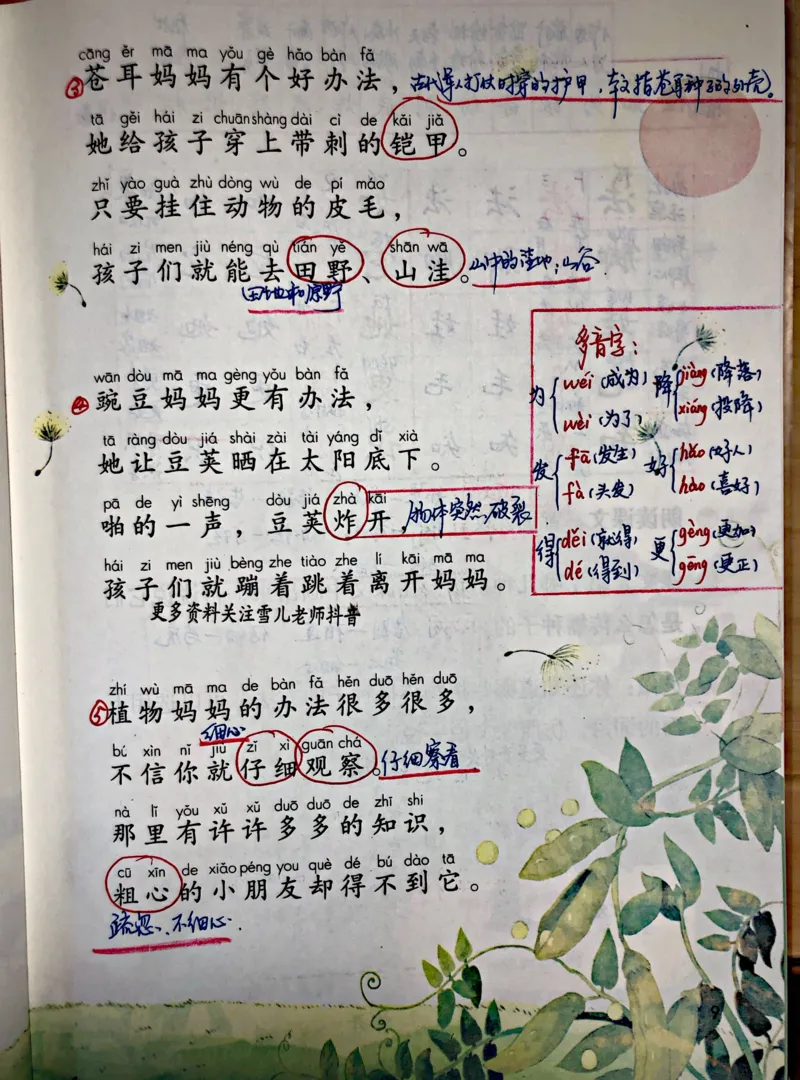 cāng ěr mā ma yǒu gè hǎo bàn fǎ
③苍耳妈妈有个好办法，
古代军人打仗时穿的护甲，本文指苍耳种子的外壳。
tā gěi hái zi chuān shàng dài cì de kǎi jiǎ
她给孩子穿上带刺的铠甲。
zhǐ yào guà zhù dòng wù de pí máo
只要挂住动物的皮毛，
hái zi men jiù néng qù tián yě shān wā
孩子们就能去田野、山洼。
山中的洼地；山谷
田地和原野
wān dòu mā ma gèng yǒu bàn fǎ
④豌豆妈妈更有办法，
tā ràng dòu jiá shài zài tài yáng dǐ xià
她让豆荚晒在太阳底下。
pā de yì shēng dòu jiá zhà kāi
啪的一声，豆荚炸开，
物体突然破裂
hái zi men jiù bèng zhe tiào zhe lí kāi mā ma
孩子们就蹦着跳着离开妈妈。
更多资料关注雪儿老师抖音
多音字：
为 wéi (成为) wèi (为了)
降 jiàng (降落) xiáng (投降)
发 fā (发生) fà (头发)
好 hǎo (好人) hào (喜好)
得 děi (就得) dé (得到)
更 gèng (更加) gēng (更正)
zhí wù mā ma de bàn fǎ hěn duō hěn duō
⑤植物妈妈的办法很多很多，
细心
bú xìn nǐ jiù zǐ xì guān chá
不信你就仔细观察。
仔细察看
nà lǐ yǒu xǔ xǔ duō duō de zhī shi
那里有许许多多的知识，
cū xīn de xiǎo péng you què dé bú dào tā
粗心的小朋友却得不到它。
疏忽、不细心.